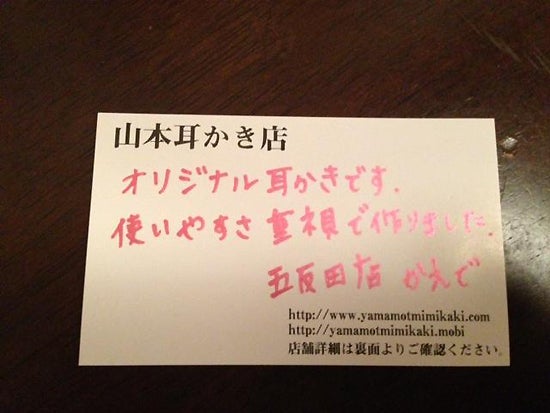 山本耳かき店
オリジナル耳かきです.
使いやすさ重視で作りました.
五反田店 かえで
http://www.yamamotmimikaki.com
http://yamamotmimikaki.mobi
店舗詳細は裏面よりご確認ください。